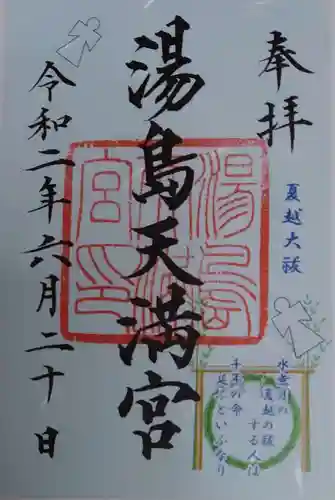 奉拝
夏越大祓
水無月の
夏越の祓
する人は
千年の命
延ぶといふなり
湯島天満宮
令和二年六月二十日